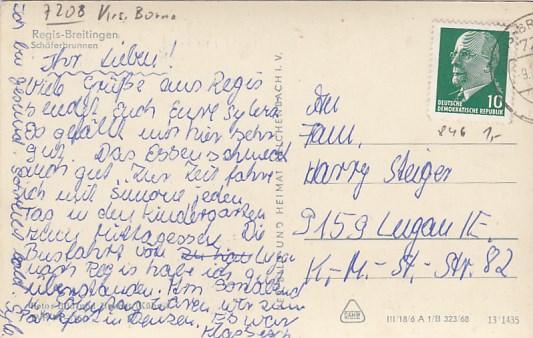 7208 Krs. Borna
Regis-Breitingen
Schäferbrunnen
Ihr Lieben!
Viele Grüße aus Regis
sendet Euch Eure Sylvia.
Es gefällt mir hier sehr
gut. Das Essen schmeckt
auch gut. Zur Zeit fahre
ich mit Simone jeden
Tag in den Kindergarten
zum Mittagessen. Die
Busfahrt von Lugau
nach Regis habe ich gut
überstanden. Am Sonnabend
waren wir zum
in
Es war
Klasse
Ich bin gesund.
bald.
HEIMAT REICHENBACH i. V.
DEUTSCHE
DEMOKRATISCHE REPUBLIK
10
846 1,-
An
Fam.
Harry Steiger
9159 Lugau /E.
K.-M.-St.-Str. 82
III/18/6 A 1/B 323/68
13 1435